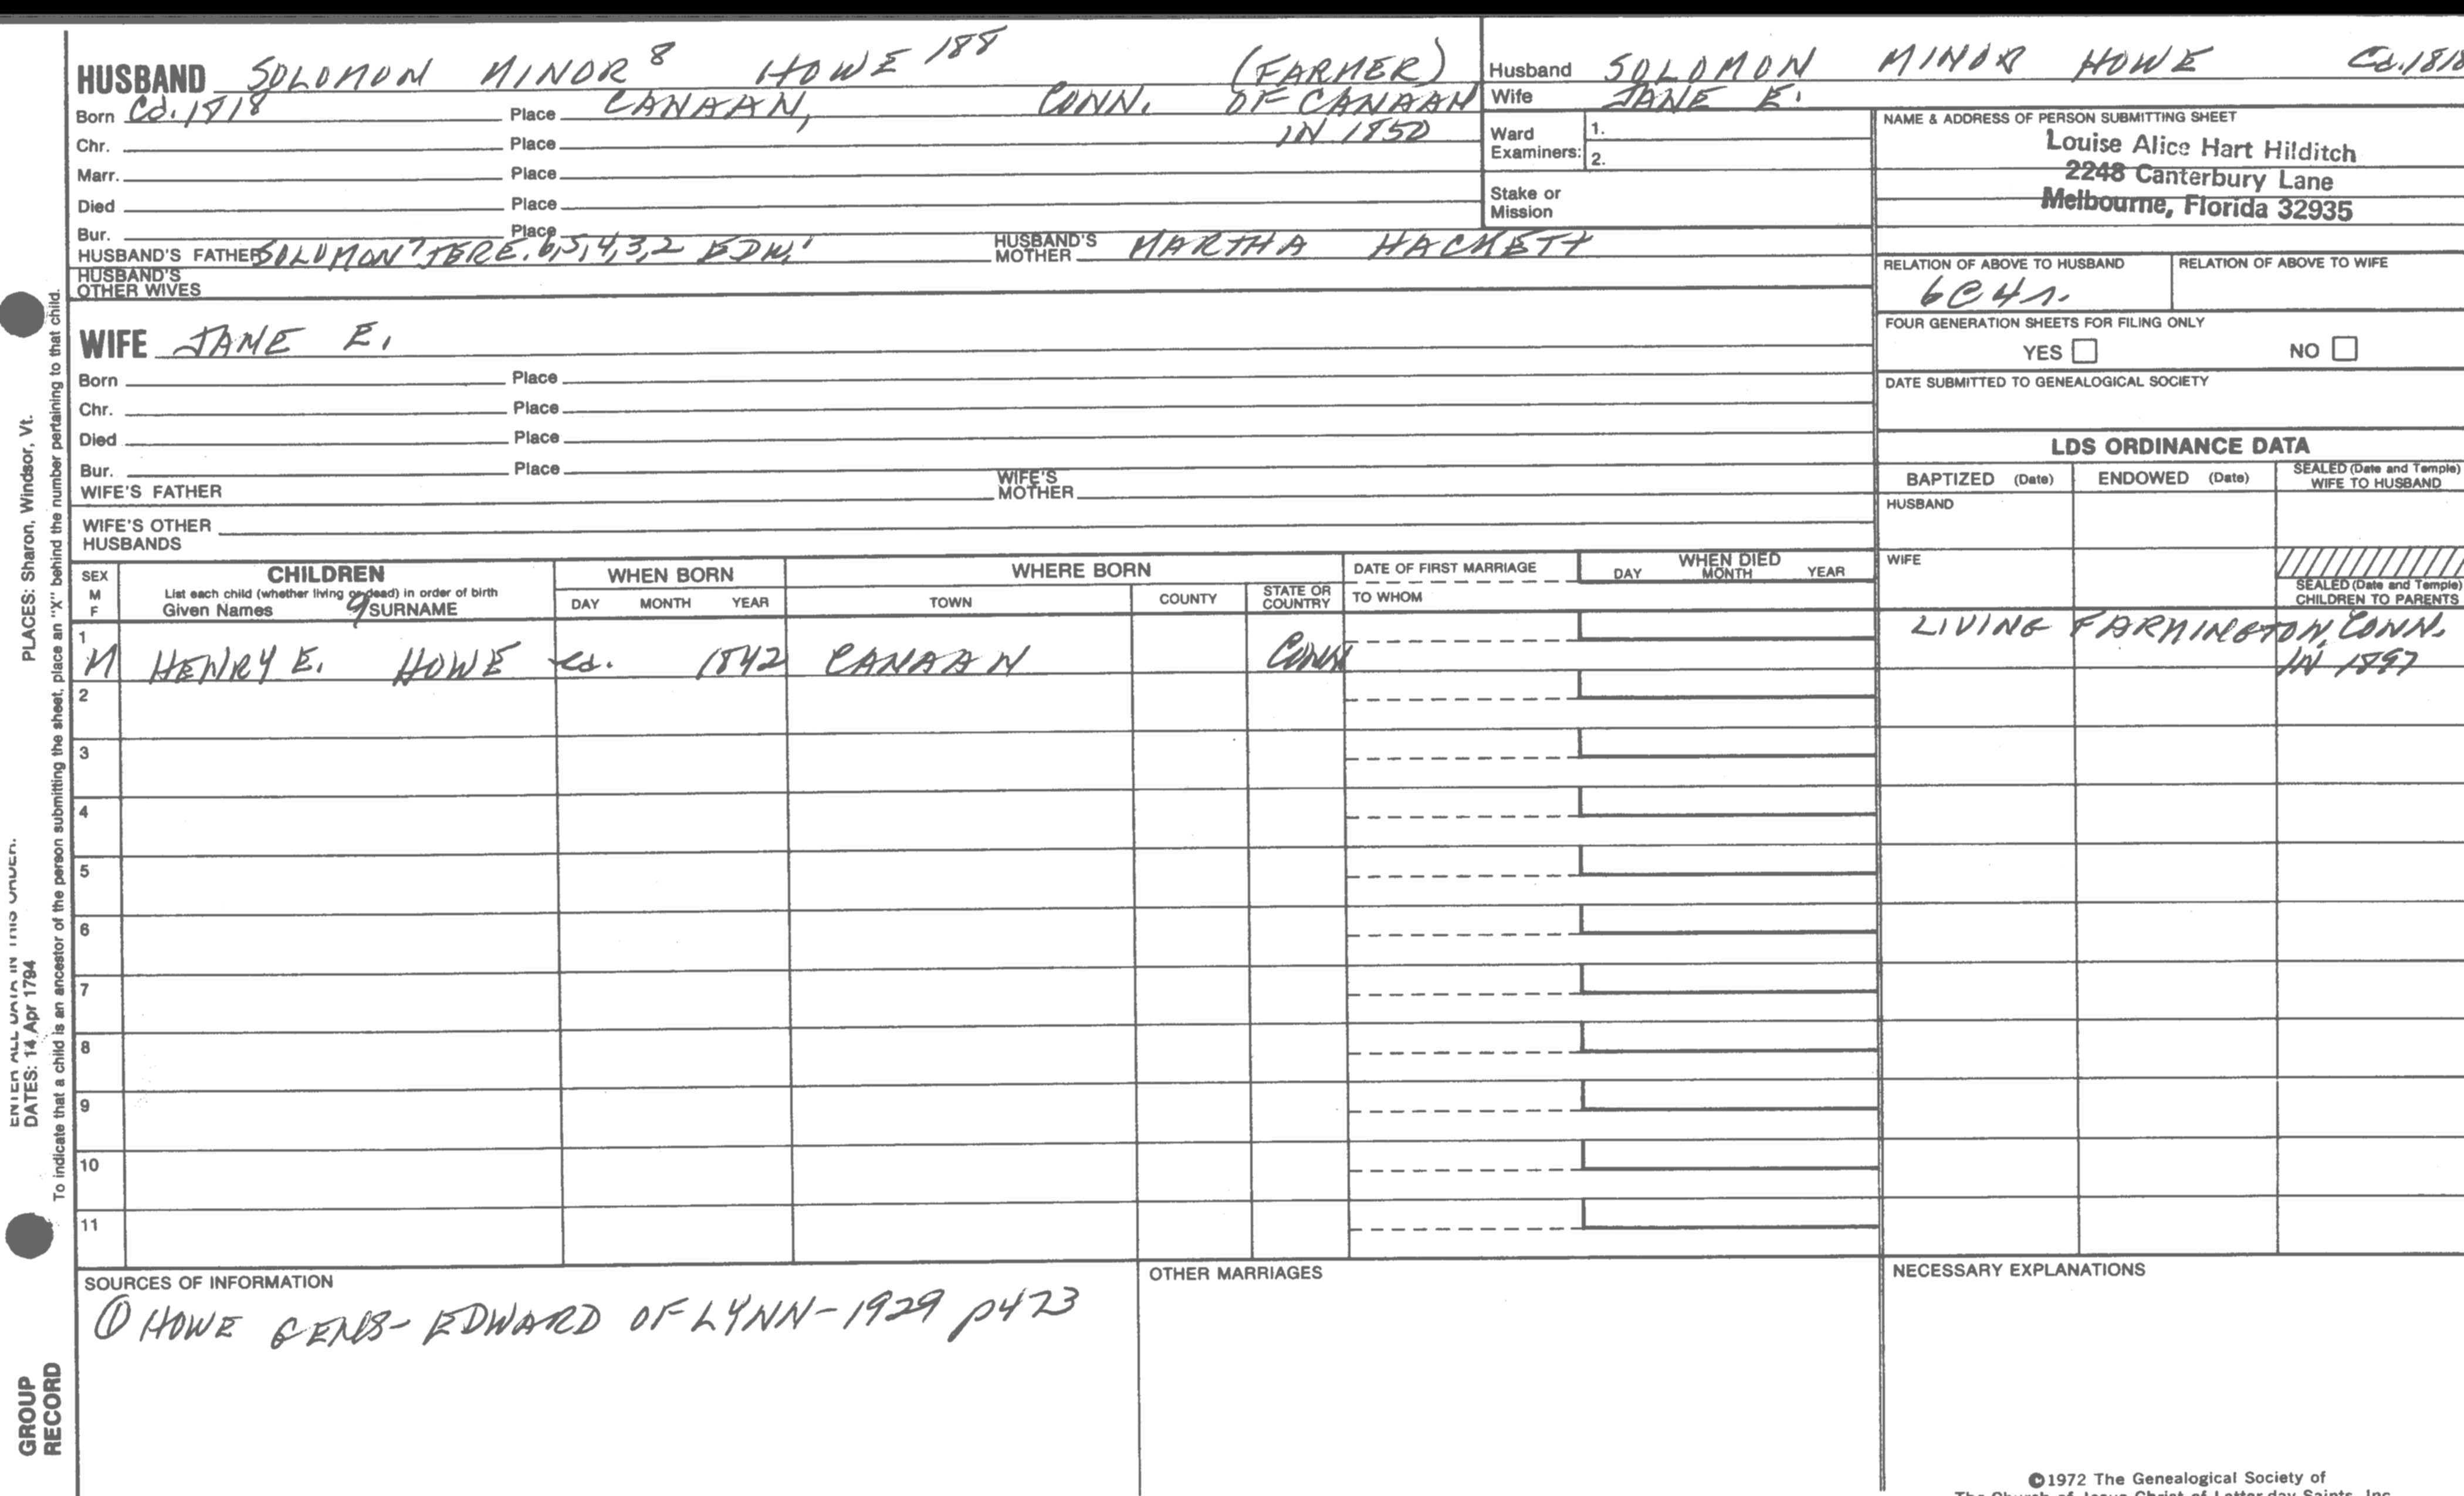 HUSBAND SOLOMON MINOR 8 HOWE 188 (FARMER)
Born Ca. 1818 Place CANAAN, CONN. OF CANAAN
Chr. Place IN 1850
Marr. Place
Died Place
Bur. Place
HUSBAND'S FATHER SOLOMON 7 JERE. 6,5,4,3,2 EDW. 1 HUSBAND'S MOTHER MARTHA HACKETT
HUSBAND'S OTHER WIVES
WIFE JANE E.
Born Place
Chr. Place
Died Place
Bur. Place
WIFE'S FATHER WIFE'S MOTHER
WIFE'S OTHER HUSBANDS
Husband SOLOMON MINOR HOWE Ca. 1818
Wife JANE E.
Ward Examiners: 1.
2.
Stake or Mission
NAME & ADDRESS OF PERSON SUBMITTING SHEET
Louise Alice Hart Hilditch
2248 Canterbury Lane
Melbourne, Florida 32935
RELATION OF ABOVE TO HUSBAND RELATION OF ABOVE TO WIFE
6C4r.
FOUR GENERATION SHEETS FOR FILING ONLY
YES NO
DATE SUBMITTED TO GENEALOGICAL SOCIETY
LDS ORDINANCE DATA
BAPTIZED (Date) ENDOWED (Date) SEALED (Date and Temple) WIFE TO HUSBAND
HUSBAND
WIFE
SEALED (Date and Temple)
CHILDREN TO PARENTS
SEX M F
CHILDREN
List each child (whether living or dead) in order of birth
Given Names 9 SURNAME
WHEN BORN
DAY MONTH YEAR
WHERE BORN
TOWN COUNTY STATE OR COUNTRY
DATE OF FIRST MARRIAGE
TO WHOM
WHEN DIED
DAY MONTH YEAR
1 M HENRY E. HOWE ca. 1842 CANAAN CONN LIVING FARMINGTON, CONN.
IN 1897
2
3
4
5
6
7
8
9
10
11
SOURCES OF INFORMATION
① HOWE GENS- EDWARD OF LYNN-1929 p473
OTHER MARRIAGES
NECESSARY EXPLANATIONS
©1972 The Genealogical Society of
The Church of Jesus Christ of Latter-day Saints, Inc.
ENTER ALL DATA IN THIS ORDER:
DATES: 14 Apr 1794 PLACES: Sharon, Windsor, Vt.
To indicate that a child is an ancestor of the person submitting the sheet, place an "X" behind the number pertaining to that child.
GROUP
RECORD